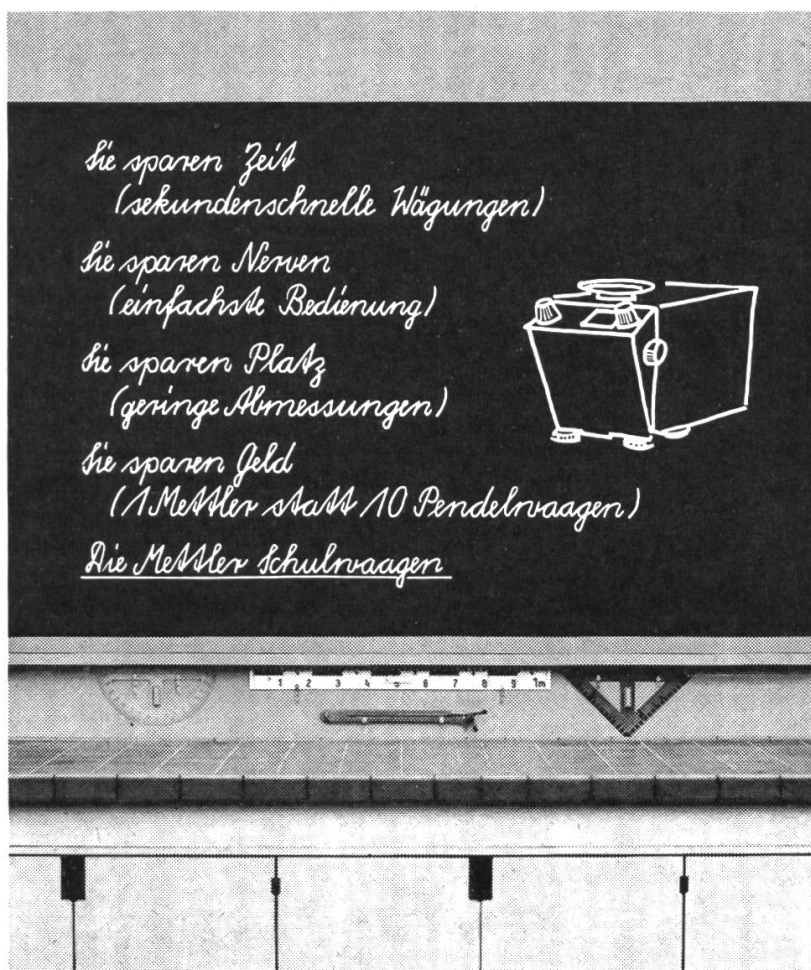 Sie sparen Zeit
(sekundenschnelle Wägungen)
Sie sparen Nerven
(einfachste Bedienung)
Sie sparen Platz
(geringe Abmessungen)
Sie sparen Geld
(1 Mettler statt 10 Pendelwaagen)
Die Mettler Schulwaagen
1 2 3 4 5 6 7 8 9 1m